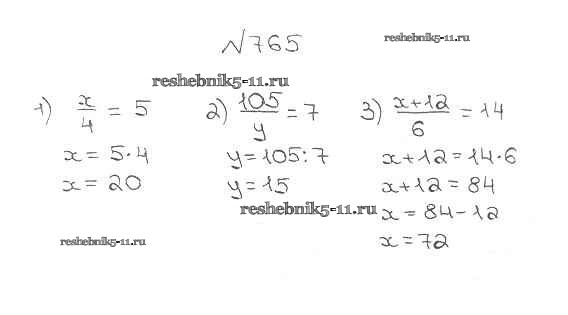 №765
reshebnik5-11.ru
reshebnik5-11.ru
1) x/4 = 5
x = 5·4
x = 20
2) 105/y = 7
y = 105:7
y = 15
3) x+12/6 = 14
x+12 = 14·6
x+12 = 84
x = 84-12
x = 72
reshebnik5-11.ru
reshebnik5-11.ru